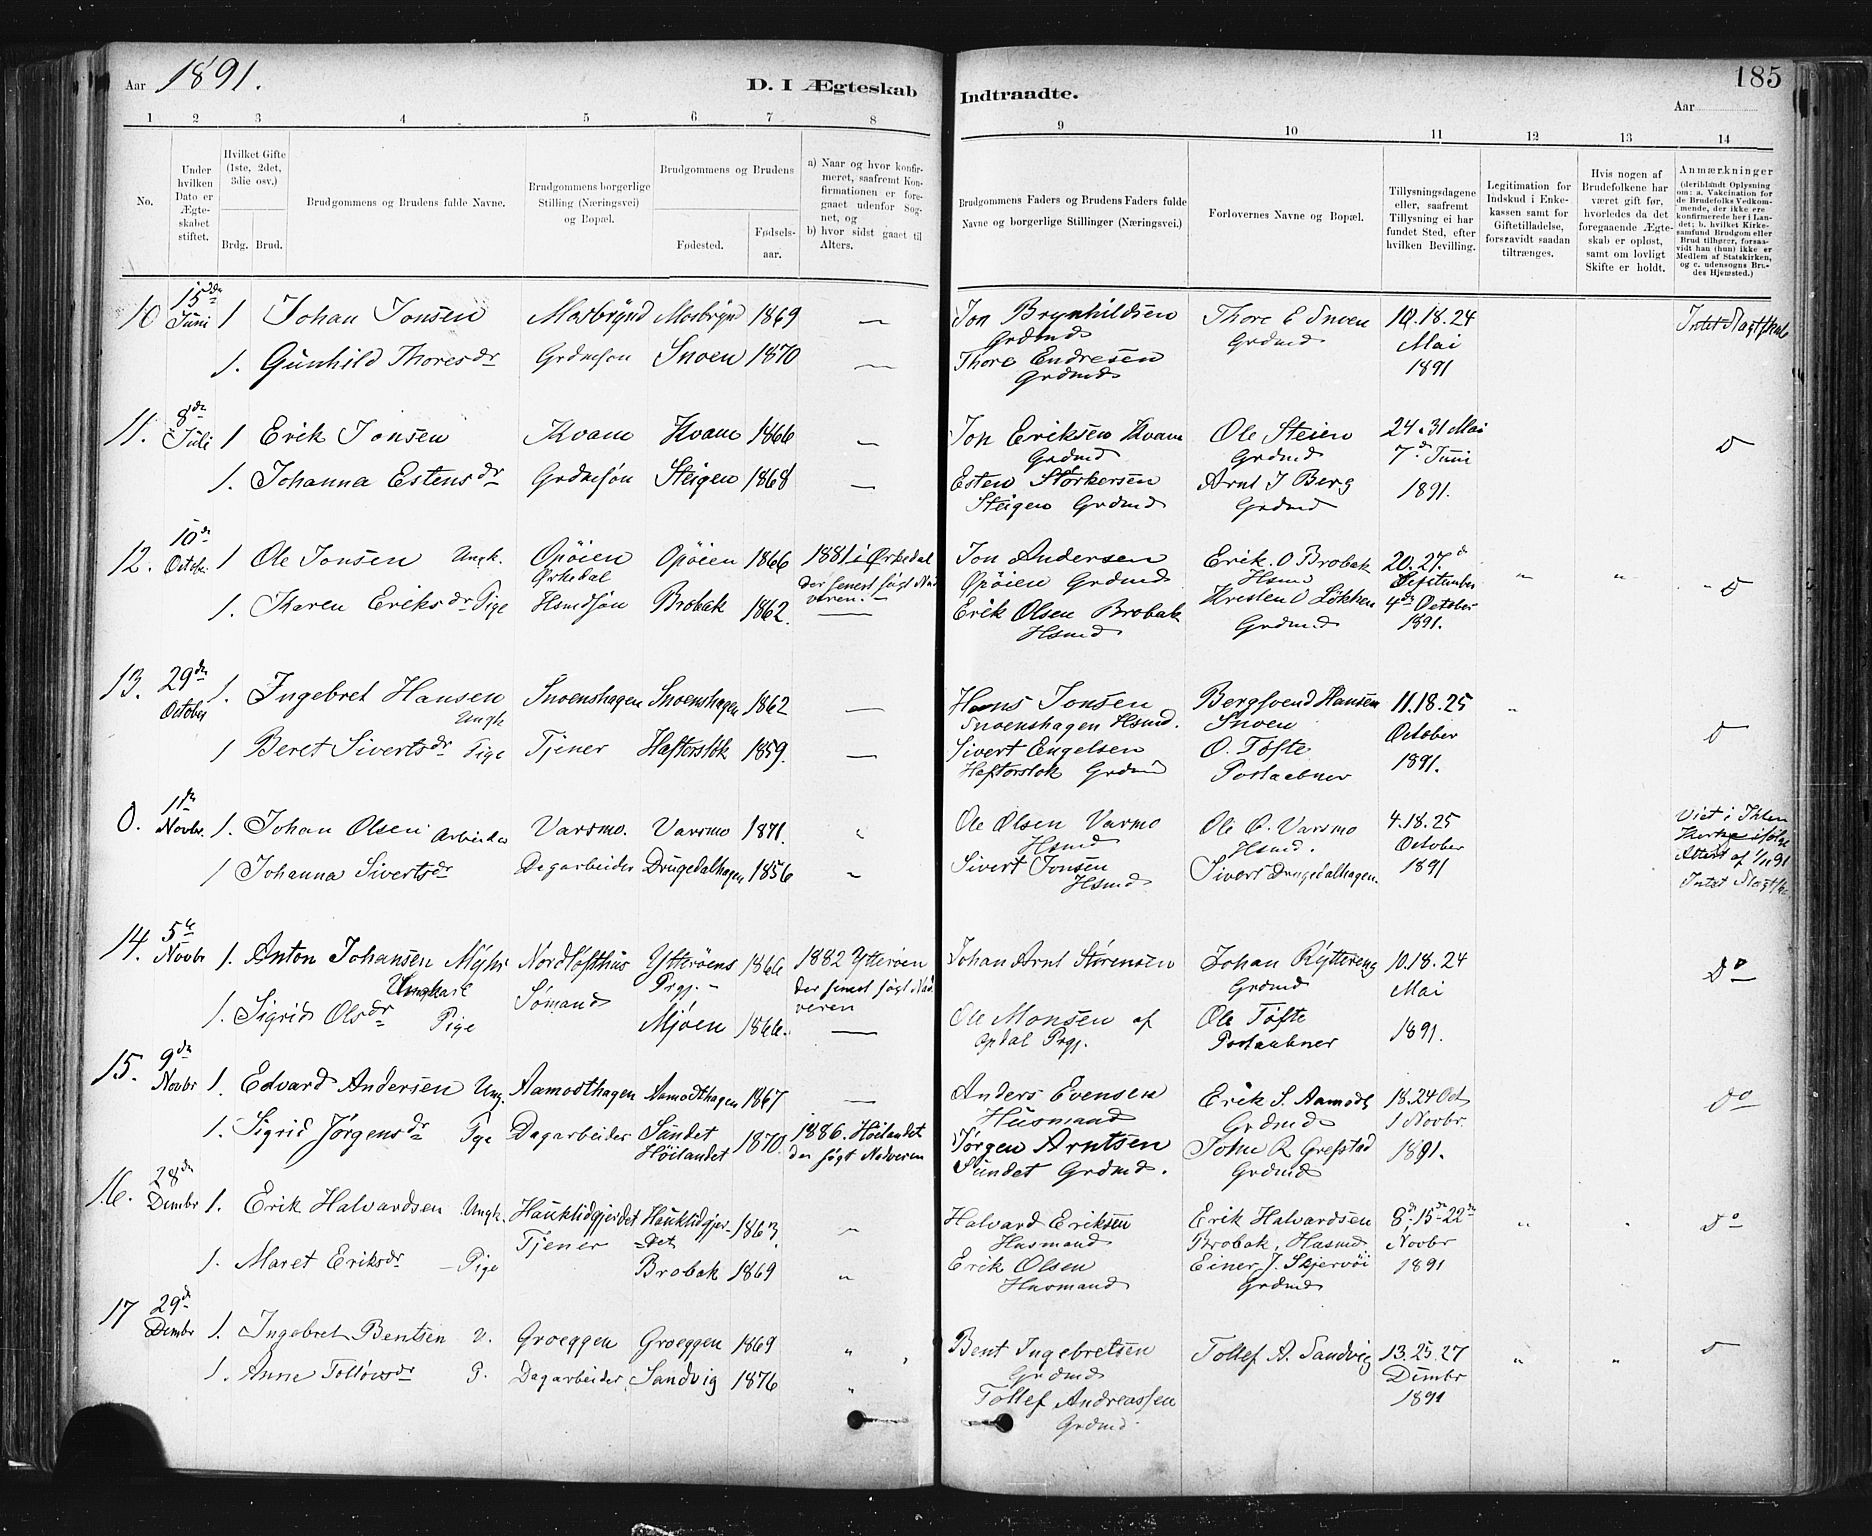 Aar 1891. D. I Ægteskab Indtraadte. 185
Aar
1 2 3 4 5 6 7 8 9 10 11 12 13 14
No.
Under hvilken Dato er Ægteskabet stiftet.
Hvilket Gifte (1ste, 2det, 3die osv.)
Brdg. Brud.
Brudgommens og Brudens fulde Navne.
Brudgommens borgerlige Stilling (Næringsvei) og Bopæl.
Brudgommens og Brudens
Fødested.
Fødselsaar.
a) Naar og hvor konfirmeret, saafremt Konfirmationen er foregaaet udenfor Sognet, og
b) hvor sidst gaaet til Alters.
Brudgommens Faders og Brudens Faders fulde Navne og borgerlige Stillinger (Næringsvei.)
Forlovernes Navne og Bopæl.
Tillysningsdagene eller, saafremt Tillysning ei har fundet Sted, efter hvilken Bevilling.
Legitimation for Indskud i Enkekassen samt for Giftetilladelse, forsaavidt saadan tiltrænges.
Hvis nogen af Brudefolkene har været gift før, hvorledes da det foregaaende Ægteskab er opløst, samt om lovligt Skifte er holdt.
Anmærkninger (deriblandt Oplysning om: a. Vakcination for de Brudefolks Vedkommende, der ikke ere konfirmerede her i Landet; b. hvilket Kirkesamfund Brudgom eller Brud tilhører, forsaavidt han (hun) ikke er Medlem af Statskirken, og c. udensogns Brudes Hjemsted.)
10 15de Juni 1 Johan Jonsen Mosbrynd Mosbrynd 1869 — Jon Brynhildsen Grdmd Thore E Snoen Grdmd 10.18.24 Mai 1891 Intet Slagtskab
1. Gunhild Thoresdr Grdmsøn Snoen 1870 — Thore Endresen Grdmd
11. 8de Juli 1 Erik Jonsen Kvam Kvam 1866 — Jon Eriksen Kvam Grdmd Ole Steien Grdmd 24. 31 Mai 7de Juni 1891. D
1. Johanna Estensdr Grdmsøn Steigen 1868 — Esten Storkersen Steigen Grdmd Arnt J Berg Grdmd
12. 10de Octobr 1 Ole Jonsen Ungk. Opøien Ørkedal Opøien 1866 1881 i Ørkedal Der senest søgt Nadveren. Jon Andersen Opøien Grdmd Erik. O Brobak Hsmd 20. 27. de September 4de October 1891. " " D
1. Karen Eriksdr Pige Hsmdsøn Brobak 1862. — Erik Olsen Brobak Hsmd Kristen O Løkken Grdmd
13. 29de October 1. Ingebret Hansen Ungk Snoenshagen Snoenshagen 1862 — Hans Jonsen Snoenshagen Hsmd. Bergsvend Hansen Snoen 11.18.25 October 1891. " D
1 Beret Sivertsdr Pige Tjener Haftorslok 1859. — Sivert Engelsen Haftorslok Grdmd O. Tøfte Postaabner
0. 1de Novbr. 1. Johan Olsen Arbeider Varsmo. Varsmo 1871. " Ole Olsen Varmo Hsmd Ole O. Varsmo Hsmd. 4.18.25 October 1891 Viet i Ihlen Kirke ifølge Attest af 1/11 91 Intet Slagtsk.
1 Johanna Sivertsdr Dagarbeider Drugedalhagen 1856 " Sivert Jonsen Hsmd Sivert Drugedalhagen.
14. 5te Novbr 1. Anton Johansen Myhr Ungkarl Nordlofthus Ytterøens Prgj. 1866 1882 Ytterøen Der senest søgt Nadveren Johan Arnt Størensen Johan Ryttereng Grdmd 10.18.24 Mai 1891. Do
1. Sigrid Olsdr Pige Sømand Mjøen 1866. — Ole Monsen af Opdal Prgj. Ole Tøfte Postaabner
15. 9de Novbr 1. Edvard Andersen Ung. Aamodthagen Aamodthagen 1867 — Anders Evensen Husmand Erik S. Aamodt Grdmd 18.24 Oct 1 Novbr. 1891. Do
1. Sigrid Jørgensdr Pge Dagarbeider Sundet Høilandet 1870. 1886. Høilandet der søgt Nadveren Jørgen Arntsen Sundet Grdmd. John R Grefstad Grdmd
16. 28de Dcmbr 1. Erik Halvardsen Ungk. Hauklidgjerdet Hauklidgjerdet 1863. " Halvard Eriksen Husmand Erik Halvardsen Brobak, Husmd 8de 15de 22de Novbr 1891 " " Do
1. Maret Eriksdr – Pige Tjener Brobak 1869 " Erik Olsen Husmand Einer J. Skjervøi Grdmd
17 29de Dcmbr 1. Ingebret Bentsen U. Groeggen Groeggen 1869 " Bent Ingebretsen Grdmd Tollef A. Sandvig 13.25.27 Dcmbr 1891 " " D
1. Anne Tollevsdr P. Dagarbeider Sandvig 1876 " Tollef Andreassen Grdmd.